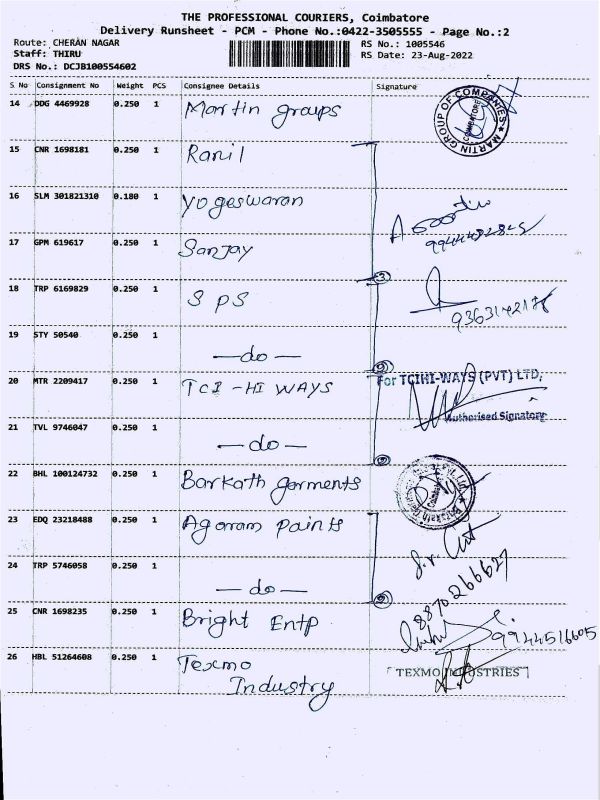 THE PROFESSIONAL COURIERS, Coimbatore
Delivery Runsheet - PCM - Phone No.:0422-3505555 - Page No.:2
Route: CHERAN NAGAR RS No.: 1005546
Staff: THIRU RS Date: 23-Aug-2022
DRS No.: DCJB100554602
S No Consignment No Weight PCS Consignee Details Signature
14 DDG 4469928 0.250 1 Martin groups
MARTIN GROUP OF COMPANIES COIMBATORE
15 CNR 1698181 0.250 1 Ranil
16 SLM 301821310 0.180 1 Yogeswaran
17 GPM 619617 0.250 1 Sanjay
3
18 TRP 6169829 0.250 1 S P S
19 STY 50540 0.250 1 -do-
20 MTR 2209417 0.250 1 TCI-HI WAYS
For TCIHI-WAYS (PVT) LTD,
Authorised Signatory
21 TVL 9746047 0.250 1 -do-
22 BHL 100124732 0.250 1 Barkath garments
23 EDQ 23218488 0.250 1 Agaram paints
24 TRP 5746058 0.250 1 -do-
8870266627
25 CNR 1698235 0.250 1 Bright Entp
9944516605
26 HBL 51264608 0.250 1 Texmo
Industry
TEXMO INDUSTRIES